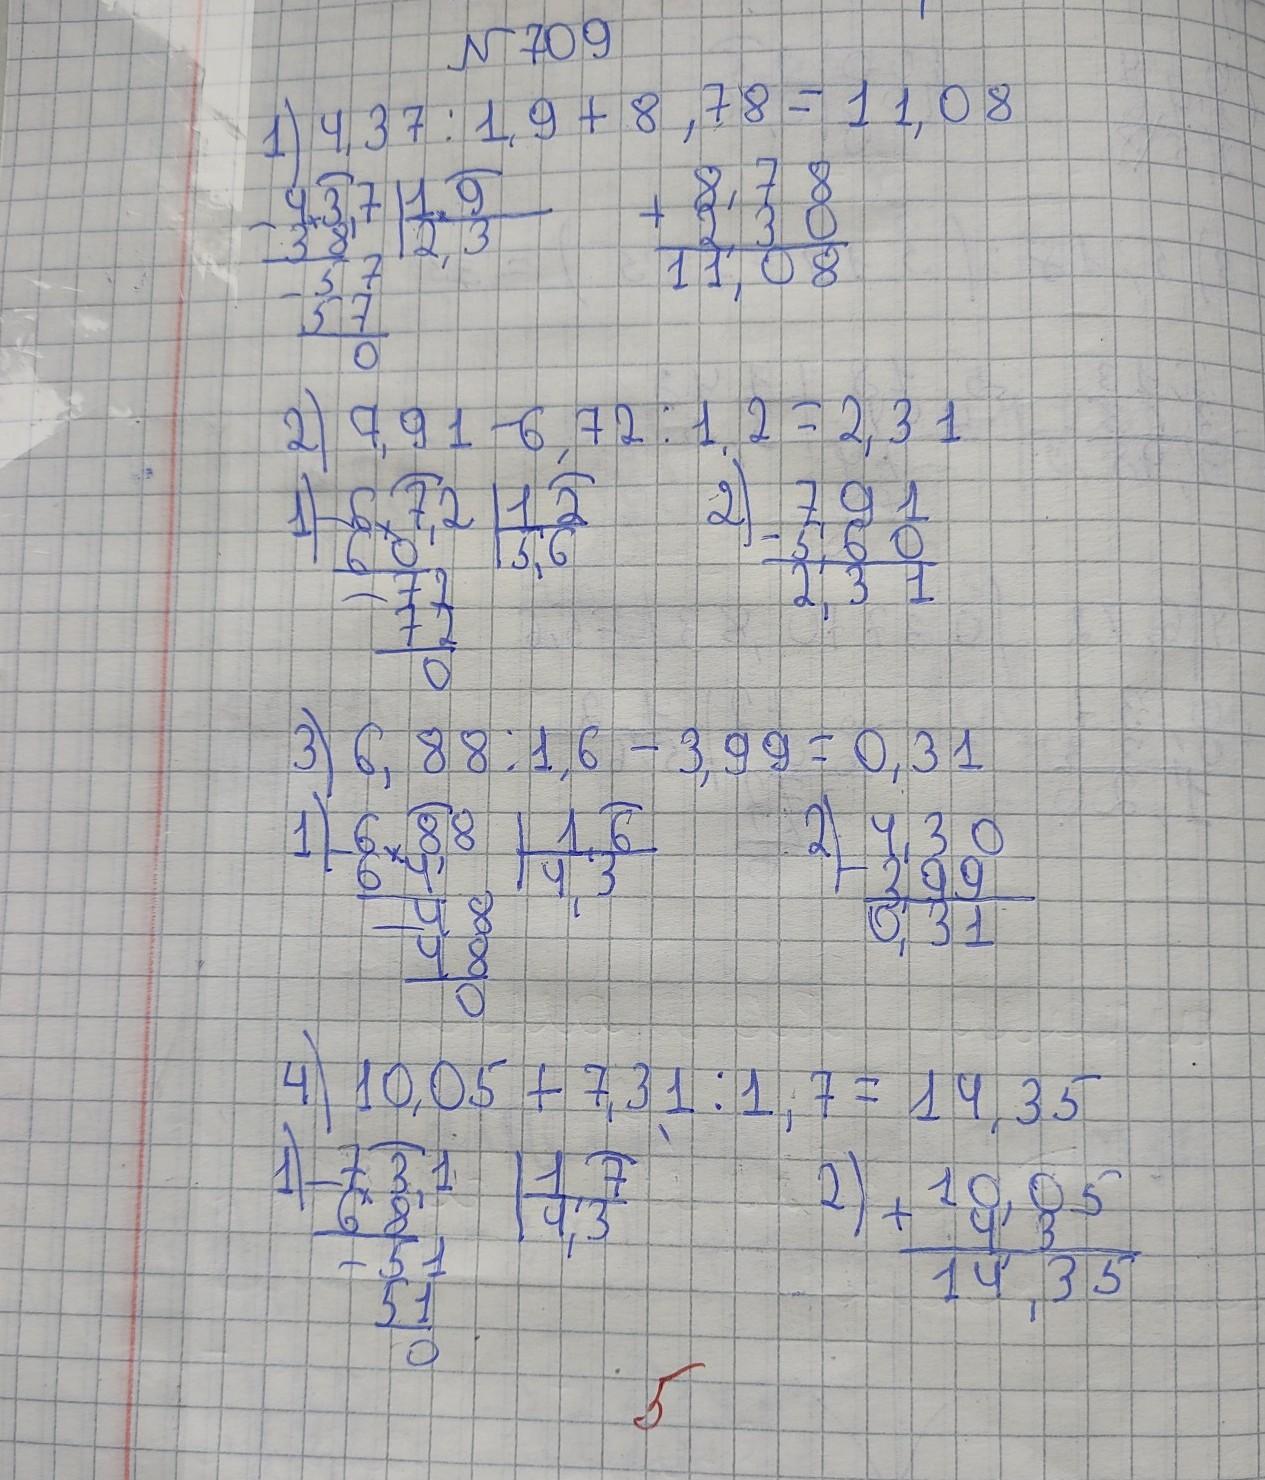 N 709
1) 4,37 : 1,9 + 8,78 = 11,08
- 4,3,7 | 1,9
3 8, | 2,3
- 5 7
5 7
0
+ 8,7 8
2,3 0
11,08
2) 7,91 - 6,72 : 1,2 = 2,31
1) - 6,7,2 | 1,2
6 0, | 5,6
- 7 2
7 2
0
2) - 7,91
5,60
2,31
3) 6,88 : 1,6 - 3,99 = 0,31
1) - 6,8,8 | 1,6
6 4, | 4,3
- 4 8
4 8
0
2) - 4,30
3,99
0,31
4) 10,05 + 7,31 : 1,7 = 14,35
1) - 7,3,1 | 1,7
6 8 | 4,3
- 5 1
5 1
0
2) + 10,05
4,3
14,35
5